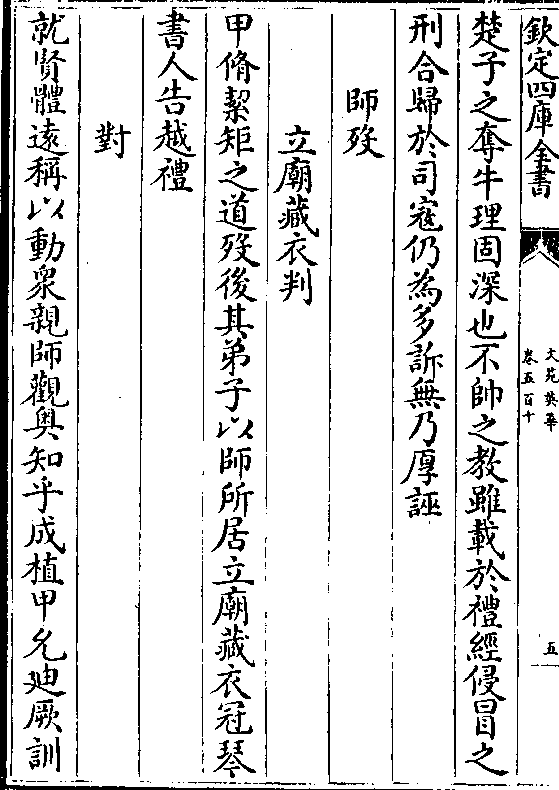 欽定四庫全書
文苑英華
卷五百十
五
楚子之奪牛理固深也不帥之教雖載於禮經侵冒之
刑合歸於司寇仍為多訴無乃厚誣
師歿
立廟藏衣判
甲脩絜矩之道歿後其弟子以師所居立廟藏衣冠琴
書人告越禮
對
就賢體遠稱以動衆親師觀奥知乎成植甲允廸厥訓